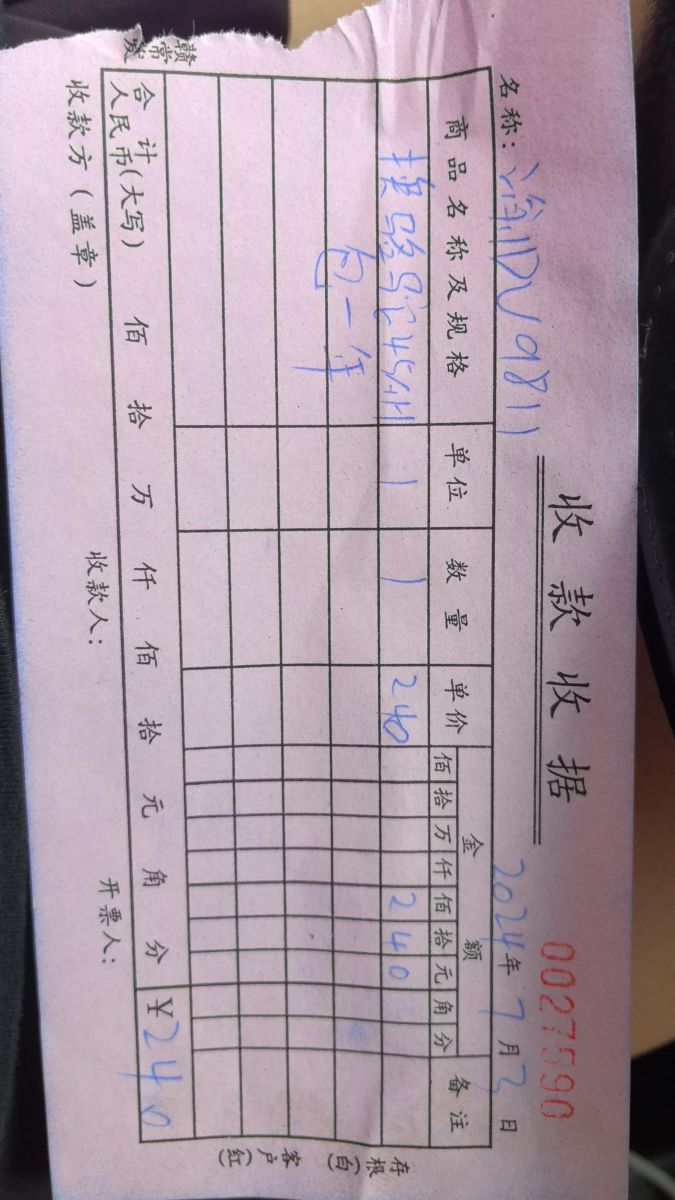 收款收据
0027590
名称：渝DV9811
2024年7月2日
商品名称及规格 单位 数量 单价 金额 备注
佰 拾 万 仟 佰 拾 元 角 分
换骆驼45AH 1 1 240 2 4 0
包一年
合计人民币(大写) 佰 拾 万 仟 佰 拾 元 角 分 ¥240
收款方(盖章) 收款人： 开票人：
存根(白) 客户(红)
赣常发